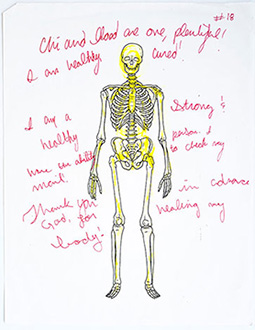 #18
Chi and Blood are one, plentiful!
I am healthy, cured!
I am a Strong &
healthy person. I
have an ability to check my
in advance
Thank you God, for healing my
body!